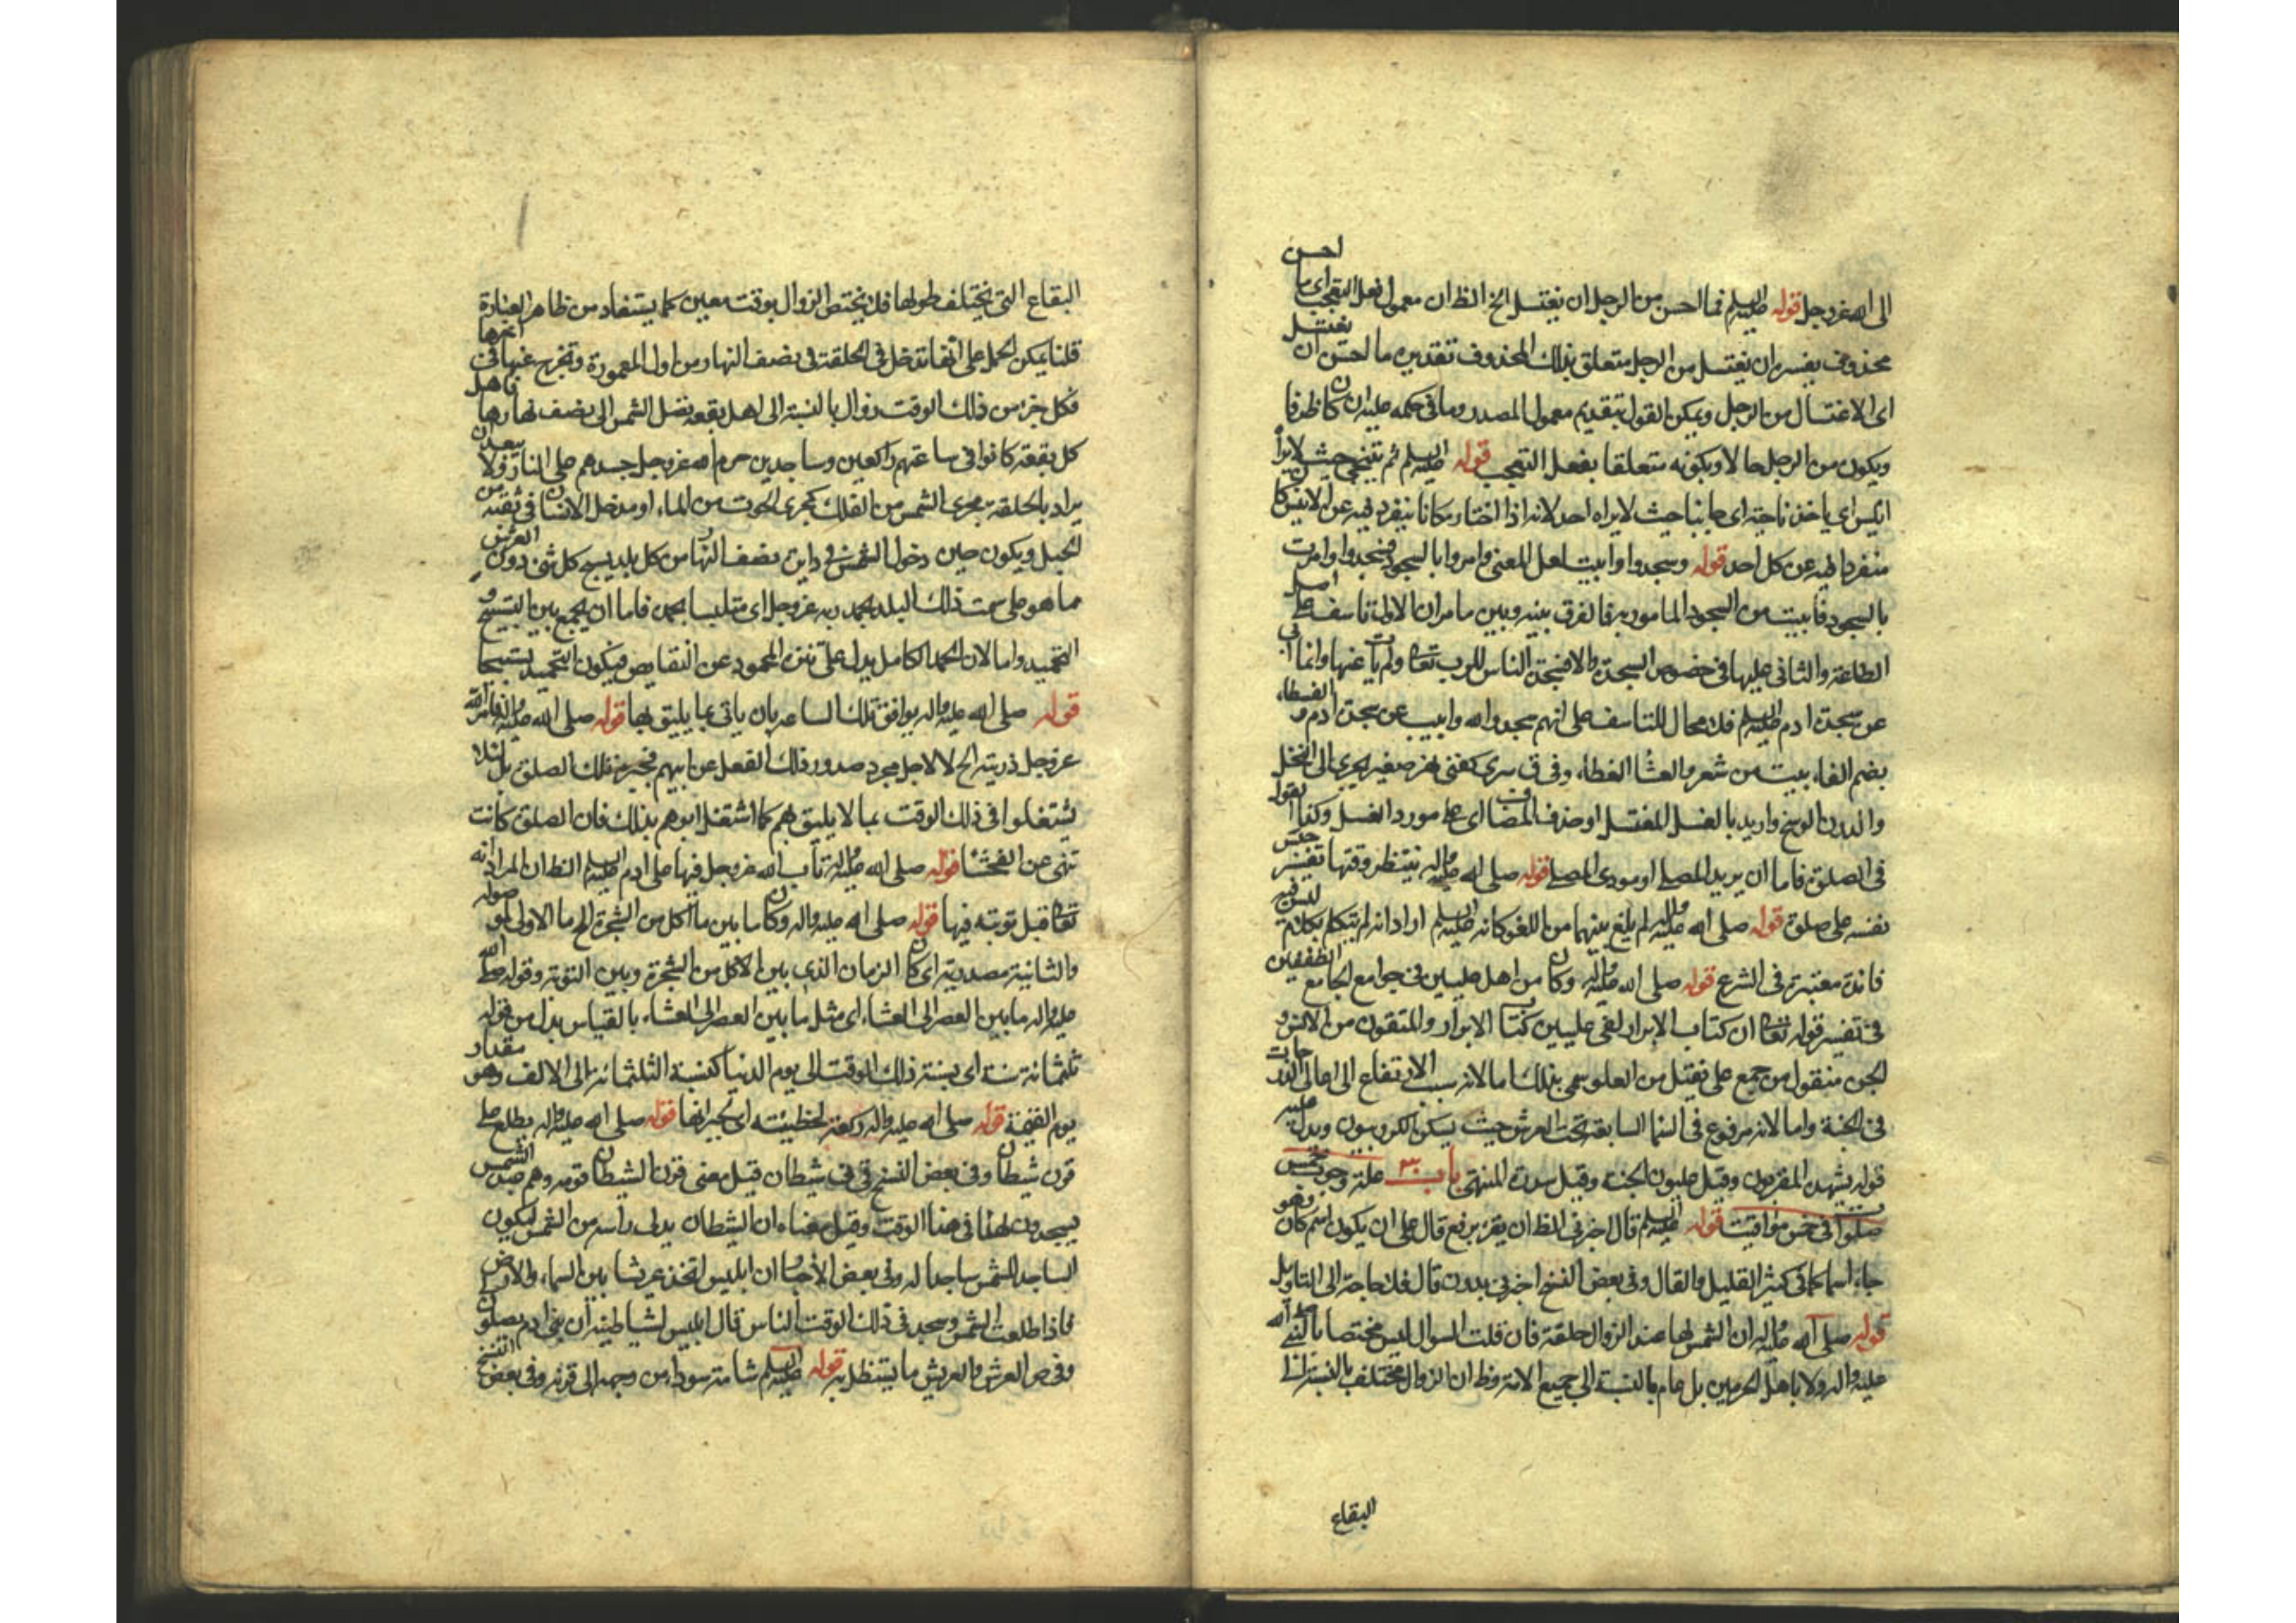 الى الله عزوجل قوله عليه السلم فما احسن من الرجل ان يغتسل الخ الظ ان معمول فعل التعجب اى ما احسن
محذوف يفسره ان يغتسل من الرجل متعلق بذلك المحذوف تقديره ما احسن ان يغتسل
اى الاغتسال من الرجل ويمكن القول بتقديم معمول المصدر وما فى حكمه عليه ان كان ظرفا
ويكون من الرجل حالا او بكونه متعلقا بفعل التعجب قوله عليه السلم ثم يتنحى حيث لا يراه
انيس اى ياخذ ناحية اى جانبا حيث لا يراه احد لانه اذا اختار مكانا ينفرد فيه عن الانيس كان
منفردا فيه عن كل احد قوله وسجدوا وابيت لعل المعنى وامروا بالسجود فسجدوا وامرت
بالسجود فابيت من السجود المامور به فالفرق بينه وبين ما مر ان الاول تاسف على اصل
الطاعة والثانى عليها فى خصوص السجدة والا فسجدة الناس للرب تعالى ولم يأب عنها وانما ابى
عن سجدة ادم عليه السلم فلا مجال للتاسف على انهم سجدوا لله وابيت عن سجدة ادم و الفسطاء
بضم الفاء بيت من شعر والغشا الغطاء وفى ق سرى كغنى نهر صغير يجرى الى النخل
والدرن الوسخ واريد بالغسل المغتسل او حذف المضاف اى على مورد الغسل وكذا القول
فى الصلوة فاما ان يريد المصلى او مودى المصلى قوله صلى الله عليه واله ينتظر وقتها تفسير حبس
نفسه على صلوة قوله صلى الله عليه واله لم يلغ بينهما من اللغو كانه عليه السلم اراد انه لم يتكلم بكلام ليس فيه
فائدة معتبرة فى الشرع قوله صلى الله عليه واله وكان من اهل عليين فى جوامع الجامع
فى تفسير قوله تعالى ان كتاب الابرار لفى عليين كتاب الابرار والمتقون من الانس و
الجن منقول من جمع على فعيل من العلو سمى بذلك اما لانه سبب الارتفاع الى اعالى الدرجات
فى الجنة واما لانه مرفوع فى السما السابقة تحت العرش حيث يسكن الكروبيون ويدل عليه
قوله يشهده المقربون وقيل عليون الجنة وقيل سدرة المنتهى باب ٣٠ علة وجوب خمس
صلوات فى خمس مواقيت قوله عليه السلم قال اخبرنى الظ ان يقرء برفع قال على ان يكون اسم كان وهو
جاء اسما كما فى كثير القليل والقال وفى بعض النسخ اخبرنى بدون قال فلا حاجة الى التاويل
قوله صلى الله عليه واله ان الشمس لها عند الزوال حلقة فان قلت السوال ليس مختصا بالنبى صلى الله
عليه واله ولا باهل الحرمين بل عام بالنسبة الى جميع الامة وظ ان الزوال مختلف بالنسبة الى
البقاع
البقاع التى يختلف طولها فلا يختص الزوال بوقت معين كما يستفاد من ظاهر العبارة
قلنا يمكن الحمل على انها تدخل فى الحلقة فى نصف النهار من اول المعمورة وتخرج عنها فى اخرها
فكل جزء من ذلك الوقت زوال بالنسبة الى اهل بقعة تصل الشمس الى نصف نهارها فاهل
كل بقعة كانوا فى ساعتهم راكعين وساجدين حرم الله عزوجل جسدهم على النار ولا يبعد ان
يراد بالحلقة مجرى الشمس من الفلك كمجرى الحوت من الماء او مدخل الانسان فى ثقبة من
الجبل ويكون حين دخول الشمس فى دائرة نصف النهار من كل بلد يسبح كل شئ دون العرش
مما هو على سمت ذلك البلد بحمد ربه عزوجل اى متلبسا بحمده فاما ان يجمع بين التسبيح و
التحميد واما لان الحمد الكامل يدل على تنزه المحمود عن النقايص فيكون التحميد تسبيحا
قوله صلى الله عليه واله يوافق تلك الساعة بان ياتى بما يليق بها قوله صلى الله عليه واله فامر الله
عزوجل ذريته الخ لا لاجل مجرد صدور ذلك الفعل عن ابيهم فجبر بذلك الصلوة بل لئلا
يشتغلوا فى ذلك الوقت بما لا يليق بهم كما اشتغل ابوهم بذلك فان الصلوة كانت
تنهى عن الفحشا قوله صلى الله عليه واله تاب الله عزوجل فيها على ادم عليه السلم الظ ان المراد انه
تعالى قبل توبته فيها قوله صلى الله عليه واله وكان ما بين ما اكل من الشجرة الخ ما الاولى موصولة
والثانية مصدرية اى كان الزمان الذى بين الاكل من الشجرة وبين التوبة وقوله صلى الله
عليه واله ما بين العصر الى العشاء اى مثل ما بين العصر الى العشاء بالقياس بدل من قوله
ثلثمائة سنة اى نسبة ذلك الوقت الى يوم الدنيا كنسبة الثلثمائة الى الالف وهو مقدار
يوم القيمة قوله صلى الله عليه واله ركعة لخطيئته اى لجبرانها قوله صلى الله عليه واله يطلع على
قرن شيطان وفى بعض النسخ قرنى شيطان قيل معنى قرن الشيطان قومه وهم عبدة الشمس
يسجدون لها فى هذا الوقت وقيل معناه ان الشيطان يدلى راسه من الشمس ليكون
الساجد للشمس ساجدا له وفى بعض الأخبار ان ابليس اتخذ عريشا بين السماء والارض
فاذا طلعت الشمس وسجد فى ذلك الوقت الناس قال ابليس لشياطينه ان بنى ادم يصلون لى
وفى ص العرش والعريش ما يستظل به قوله عليه السلم شامة سوداء من وجهه الى قرنه وفى بعض النسخ